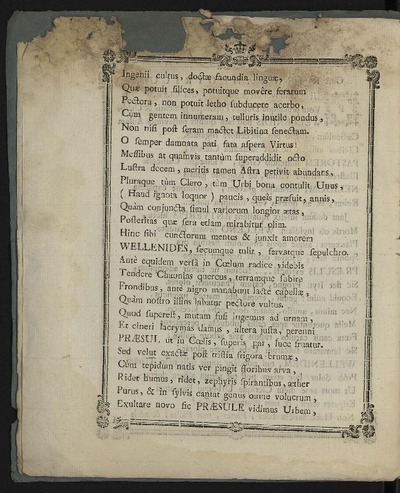 Ingenii cultus, doctæ facundia linguæ,
Quæ potuit silices, potuitque movêre ferarum
Pectora, non potuit letho subducere acerbo,
Cum gentem innumeram, telluris inutile pondus,
Non nisi post seram mactet Libitina senectam.
O semper damnata pati fata aspera Virtus!
Messibus at quamvis tantùm superaddidit octo
Lustra decem, meritis tamen Astra petivit abundans,
Pluraque tùm Clero, tùm Urbi bona contulit Unus,
( Haud ignota loquor ) paucis, queîs præfuit, annis,
Quàm conjuncta simul variorum longior ætas,
Posteritas quæ sera etiam mirabitur olim.
Hinc sibi cunctorum mentes & junxit amorem
WELLENIDES, secumque tulit, servatque sepulchro.
Antè equidem versâ in Cœlum radice videbis
Tendere Chaonias quercus, terramque subire
Frondibus, antè nigro manabunt lacte capellæ,
Quàm nostro illius labatur pectore vultus.
Quod superest, mutam fusi ingemus ad urnam,
Et cineri lacrymas damus, altera justa, perenni
PRÆSUL ut in Cœlis, supera par, luce fruatur.
Sed velut exactæ post tristia frigora brumæ,
Cùm tepidum natis ver pingit floribus arva,
Ridet humus, ridet, zephyris spirantibus, æther
Purus, & in sylvis cantat genus omne volucrum,
Exultare novo sic PRÆSULE vidimus Urbem,